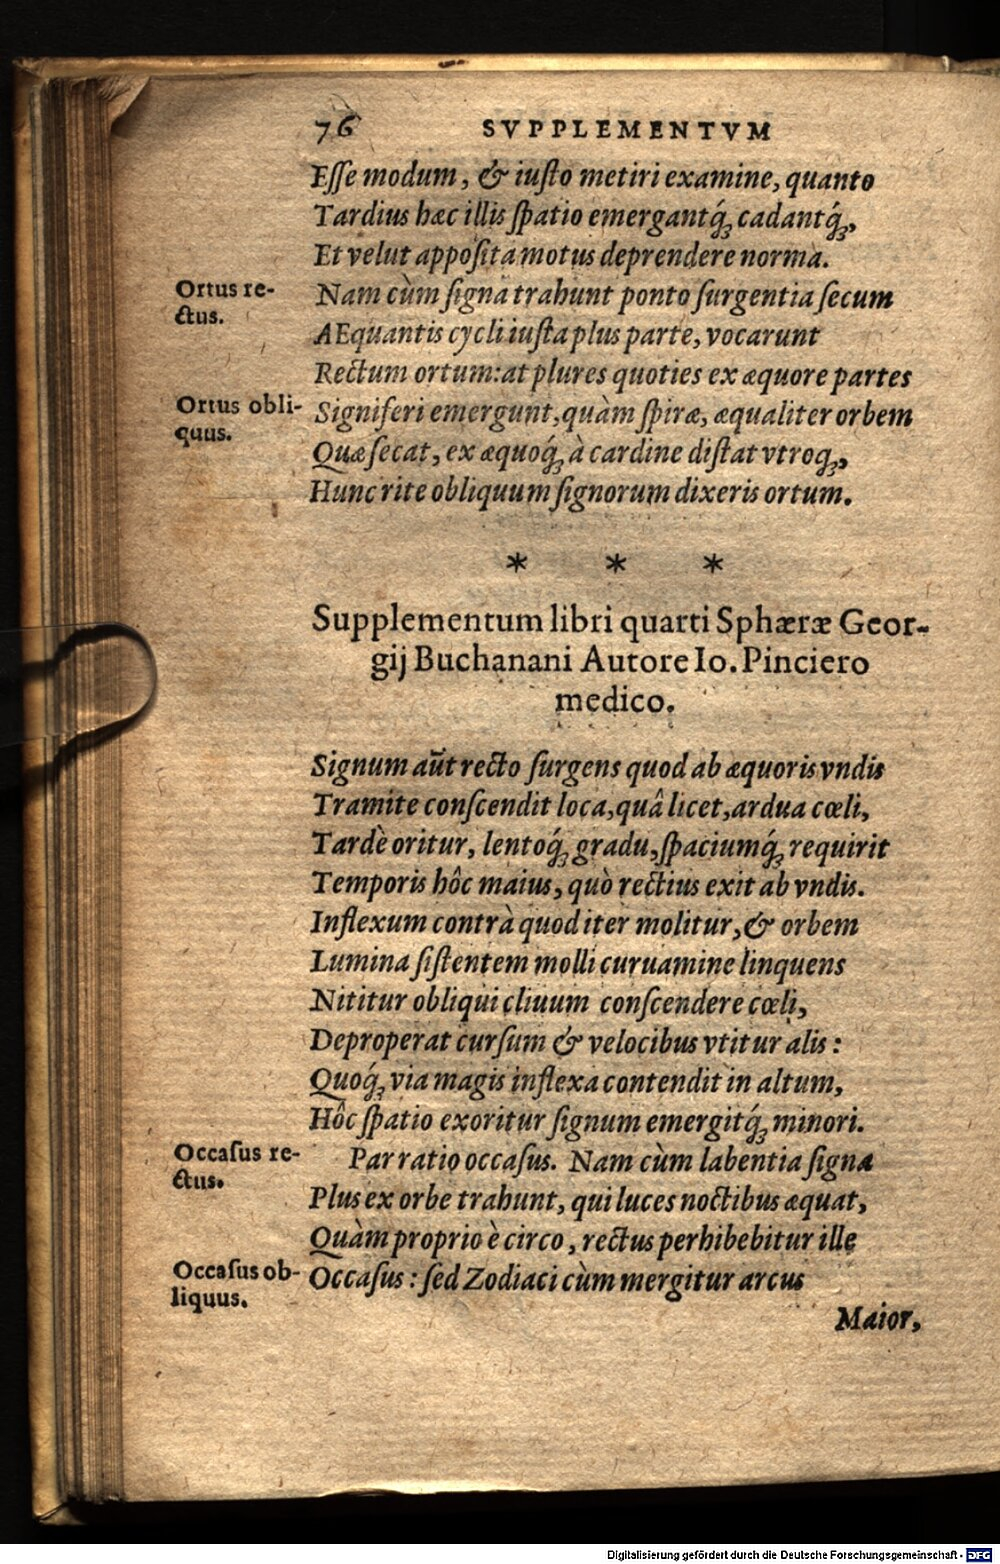 76 SVPPLEMENTVM
Esse modum, & iusto metiri examine, quanto
Tardius hæc illis spatio emergantq́; cadantq́;,
Et velut apposita motus deprendere norma.
Ortus re-
ctus.
Nam cùm signa trahunt ponto surgentia secum
AEquantis cycli iusta plus parte, vocarunt
Rectum ortum: at plures quoties ex æquore partes
Ortus obli-
quus.
Signiferi emergunt, quàm spiræ, æqualiter orbem
Quæ secat, ex æquoq́; à cardine distat vtroq;,
Hunc rite obliquum signorum dixeris ortum.
* * *
Supplementum libri quarti Sphæræ Geor-
gij Buchanani Autore Io. Pinciero
medico.
Signum aūt recto surgens quod ab æquoris vndis
Tramite conscendit loca, quâ licet, ardua cœli,
Tardè oritur, lentoq́; gradu, spaciumq́; requirit
Temporis hôc maius, quò rectius exit ab vndis.
Inflexum contrà quod iter molitur, & orbem
Lumina sistentem molli curuamine linquens
Nititur obliqui cliuum conscendere cœli,
Deproperat cursum & velocibus vtitur alis:
Quoq́; via magis inflexa contendit in altum,
Hôc spatio exoritur signum emergitq́; minori.
Occasus re-
ctus.
Par ratio occasus. Nam cùm labentia signa
Plus ex orbe trahunt, qui luces noctibus æquat,
Quàm proprio è circo, rectus perhibebitur ille
Occasus ob-
liquus.
Occasus: sed Zodiaci cùm mergitur arcus
Maior,
Digitalisierung gefördert durch die Deutsche Forschungsgemeinschaft - DFG